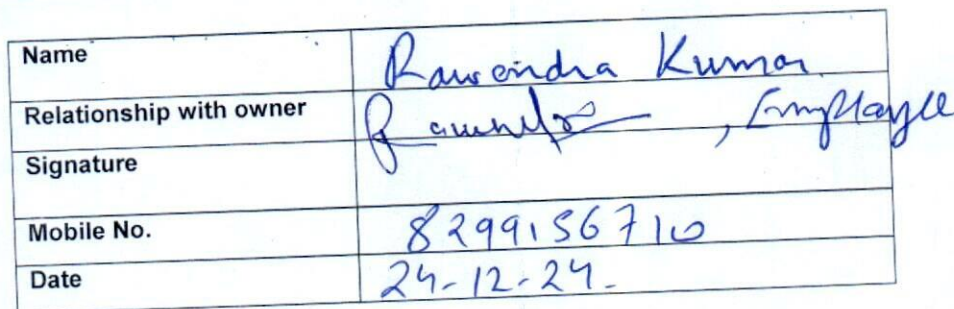 Name Rawendra Kumar
Relationship with owner , Employee
Signature
Mobile No. 8299156710
Date 24-12-24.